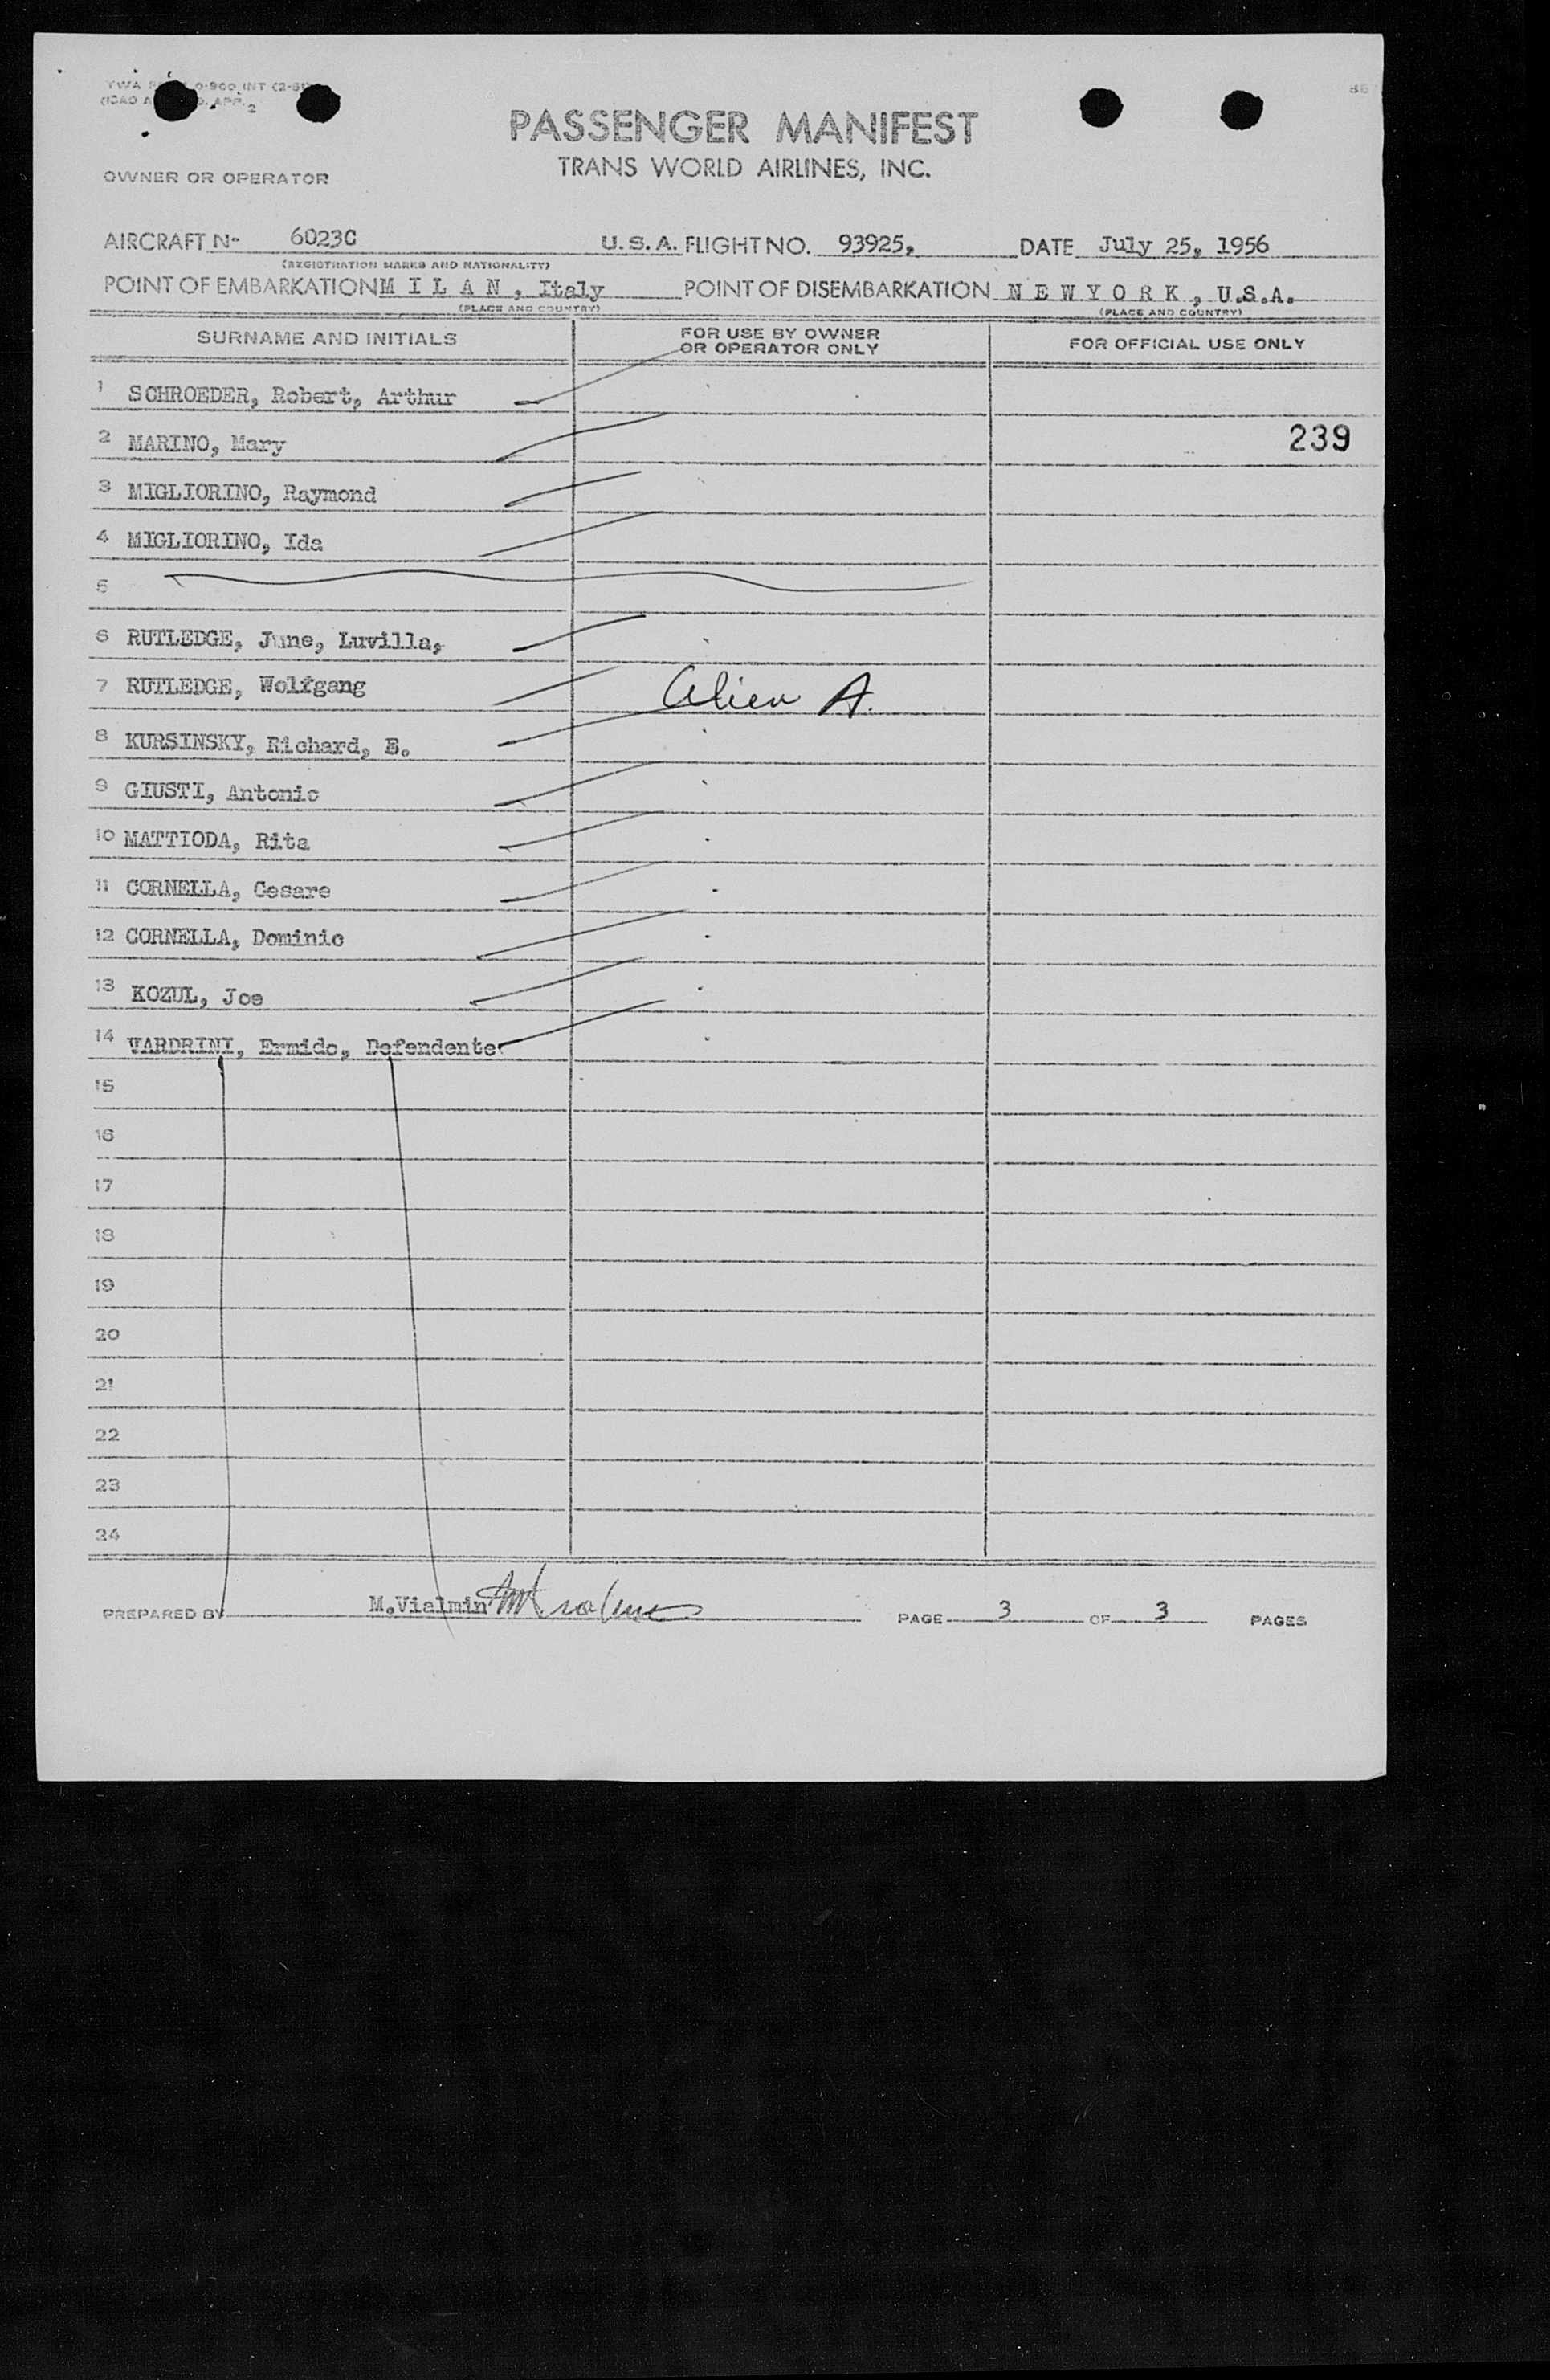 TWA 0-900 INT (2-51)
(ICAO APP. 2
86
PASSENGER MANIFEST
TRANS WORLD AIRLINES, INC.
OWNER OR OPERATOR
AIRCRAFT N- 6023C U.S.A. FLIGHT NO. 93925, DATE July 25, 1956
(REGISTRATION MARKS AND NATIONALITY)
POINT OF EMBARKATION M I L A N , Italy POINT OF DISEMBARKATION N E W Y O R K , U.S.A.
(PLACE AND COUNTRY) (PLACE AND COUNTRY)
SURNAME AND INITIALS FOR USE BY OWNER OR OPERATOR ONLY FOR OFFICIAL USE ONLY
1 SCHROEDER, Robert, Arthur
2 MARINO, Mary 239
3 MIGLIORINO, Raymond
4 MIGLIORINO, Ida
5
6 RUTLEDGE, June, Luvilla,
7 RUTLEDGE, Wolfgang Alien A.
8 KURSINSKY, Richard, E.
9 GIUSTI, Antonio
10 MATTIODA, Rita
11 CORNELLA, Cesare
12 CORNELLA, Dominic
13 KOZUL, Joe
14 VARDRINI, Ermido, Defendente
15
16
17
18
19
20
21
22
23
24
PREPARED BY M.Vialmin PAGE 3 OF 3 PAGES